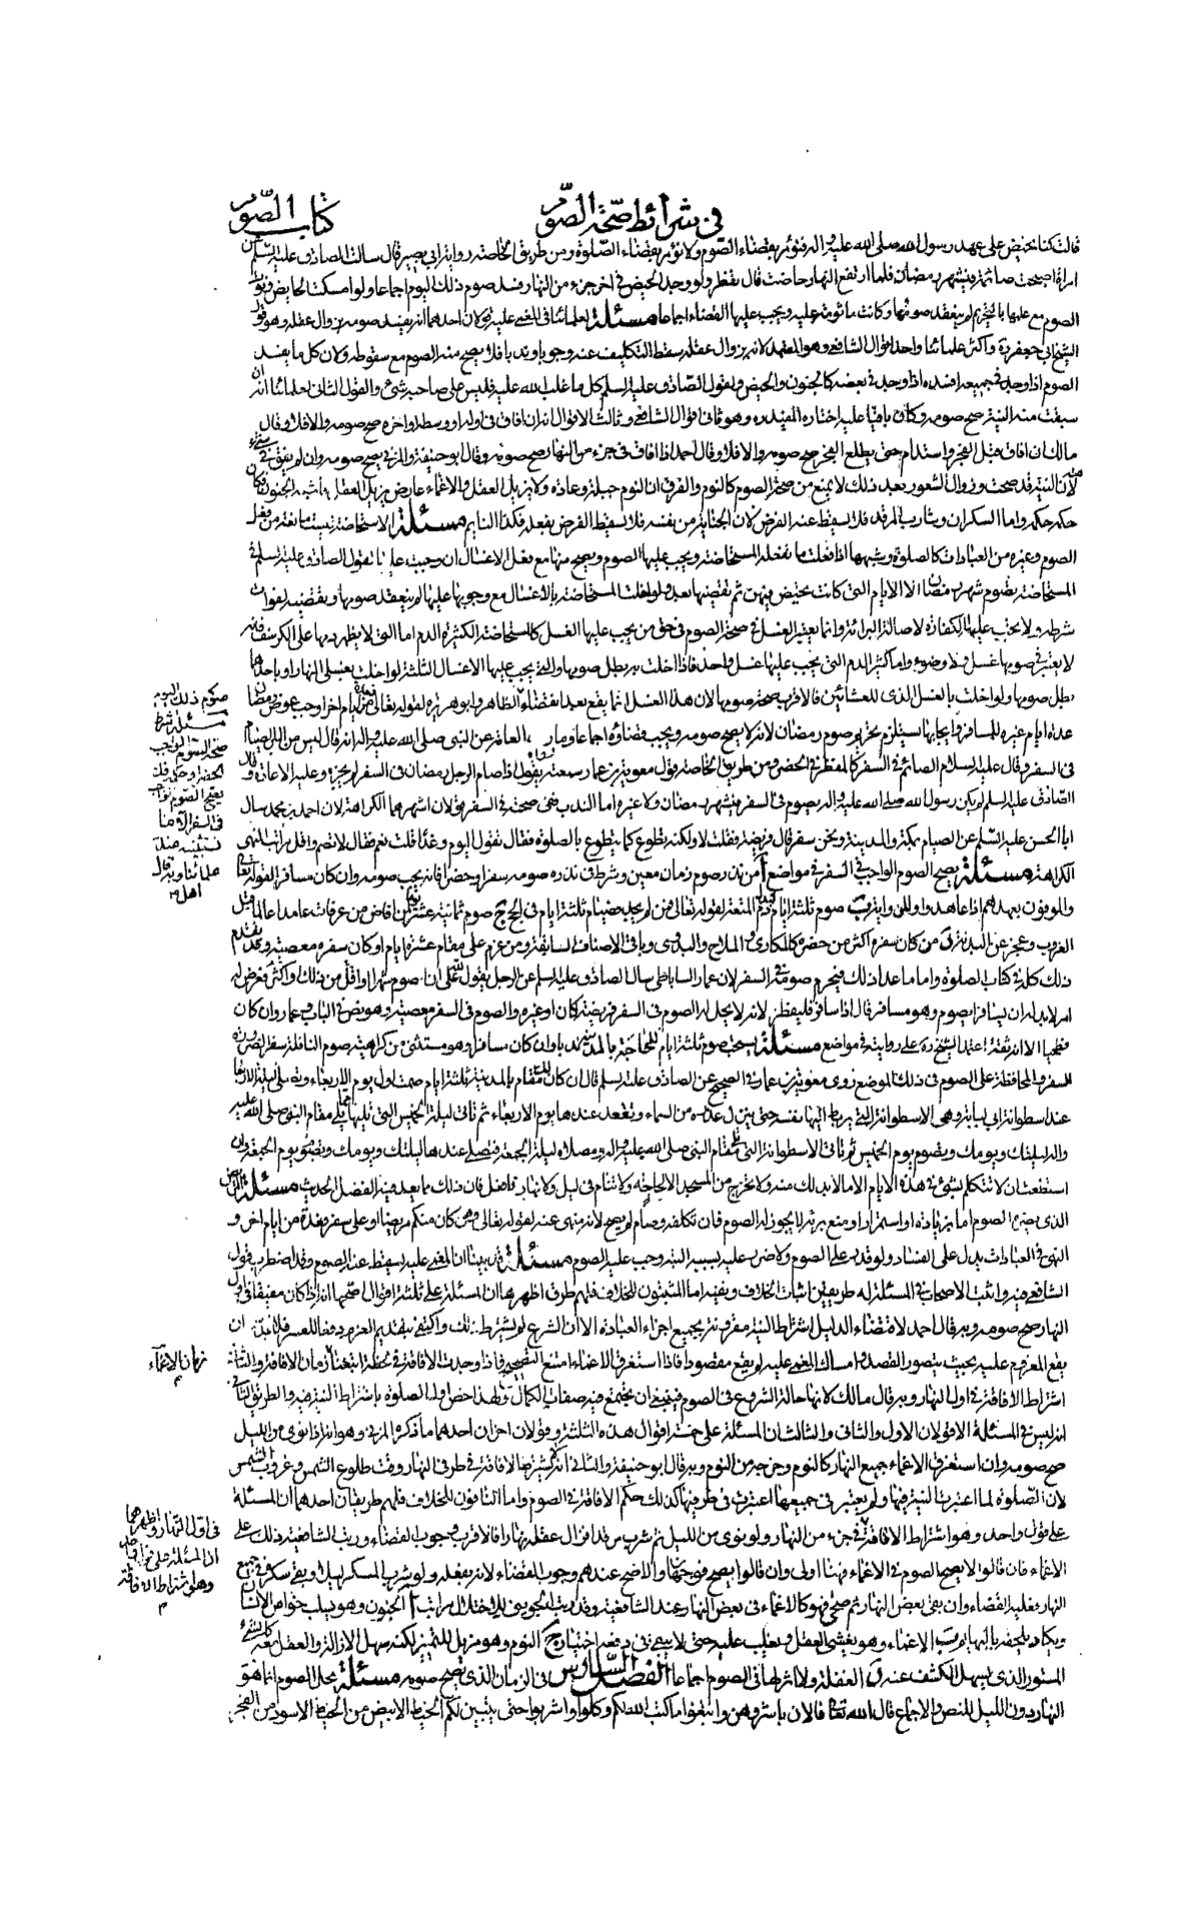 في شرائط صحة الصوم
كتاب الصوم
قالت كنا نحيض على عهد رسول الله صلى الله عليه وآله فنؤمر بقضاء الصوم ولا نؤمر بقضاء الصلوة ومن طريق الخاصة رواية أبي بصير قال سالت الصادق عليه السلم عن
امراة اصبحت صائمة في شهر رمضان فلما ارتفع النهار حاضت قال تفطر ولو وجد الحيض في اخر جزء من النهار فسد صوم ذلك اليوم اجماعا ولو امسكت الحايض ونوت
الصوم مع علمها بالتحريم لم ينعقد صومها وكانت مأثومة عليه ويجب عليها القضاء اجماعا مسئلة لعلمائنا في المغمى عليه قولان احدهما انه يفسد صومه بزوال عقله وهو قول
الشيخ ابي جعفر ره واكثر علمائنا واحد اقوال الشافعي وهو المعتمد لانه بزوال عقله سقط التكليف عنه وجوبا وندبا فلا يصح منه الصوم مع سقوطه ولان كل ما يفسد
الصوم اذا وجد في جميعه افسده اذا وجد في بعضه كالجنون والحيض ولقول الصادق عليه السلم كل ما غلب الله عليه فليس على صاحبه شئ والقول الثاني لعلمائنا انه ان
سبقت منه النية صح صومه وكان باقيا عليه اختاره المفيد ره وهو ثاني اقوال الشافعي وثالث الاقوال انه ان افاق في اوله او وسطه او اخره صح صومه والا فلا وقال
مالك ان افاق قبل الفجر واستدام حتى يطلع الفجر صح صومه والا فلا وقال احمد اذا افاق في جزء من النهار صح صومه وقال ابو حنيفة والمزني يصح صومه وان لم يفق في شئ
منه لان النية قد صحت وزوال الشعور بعد ذلك لا يمنع من صحة الصوم كالنوم والفرق ان النوم جبلة وعادة ولا يزيل العقل والاغماء عارض يزيل العقل فاشبه الجنون فكان
حكمه حكمه واما السكران وشارب المرقد فلا يسقط عنه الفرض لان الجناية من نفسه فلا يسقط الفرض بفعله وكذا النايم مسئلة الاستحاضة ليست مانعة من فعل
الصوم وغيره من العبادات كالصلوة وشبهها اذا فعلت ما تفعله المستحاضة ويجب عليها الصوم ويصح منها مع فعل الاغسال ان وجبت عليها لقول الصادق عليه السلم في
المستحاضة تصوم شهر رمضان الا الايام التي كانت تحيض فيهن ثم تقضيها بعد ولو اخلت المستحاضة بالاغسال مع وجوبها عليها لم ينعقد صومها وتقضيه لفوات
شرطه ولا يجب عليها الكفارة لاصالة البراءة وانما يعتبر الغسل في صحة الصوم في حق من يجب عليها الغسل كالمستحاضة الكثيرة الدم اما التي لا يظهر دمها على الكرسف فانه
لا يعتبر في صومها غسل ولا وضوء واما كثير الدم التي يجب عليها غسل واحد فاذا اخلت به بطل صومها والتي يجب عليها الاغسال الثلثة لو اخلت بغسلي النهار او باحدهما
بطل صومها ولو اخلت بالغسل الذي للعشائين فالاقرب صحة صومها لان هذا الغسل انما يقع بعد انقضاء الظاهر وابو هريرة لقوله تعالى فعدة من ايام اخر اوجب عوض رمضان
عدة ايام غيره للمسافر وايجابها يستلزم تحريم صوم رمضان لانه لا يصح صومه ويجب قضاؤه اجماعا وما رواه العامة عن النبي صلى الله عليه وآله انه قال ليس من البر الصيام
في السفر وقال عليه السلام الصائم في السفر كالمفطر في الحضر ومن طريق الخاصة قول معوية بن عمار سمعته يقول اذا صام الرجل رمضان في السفر لم يجزه وعليه الاعادة وقال
الصادق عليه السلم لم يكن رسول الله صلى الله عليه وآله يصوم في السفر في شهر رمضان ولا غيره اما الندب ففي صحته في السفر قولان اشهرهما الكراهة لان احمد بن محمد سال
ابا الحسن عليه السلم عن الصيام بمكة والمدينة ونحن سفر قال فريضة فقلت لا ولكنه تطوع كما يتطوع بالصلوة فقال تقول اليوم وغدا قلت نعم فقال لا تصم واقل مراتب النهي
الكراهة مسئلة يصح الصوم الواجب في السفر في مواضع آ من نذر صوم زمان معين وشرط في نذره صومه سفرا وحضرا فانه يجب صومه وان كان مسافرا لقوله تعالى
والموفون بعهدهم اذا عاهدوا ب صوم ثلثة ايام لدم المتعة لقوله تعالى فمن لم يجد فصيام ثلثة ايام في الحج ج صوم ثمانية عشر يوما لمن افاض من عرفات عامدا عالما قبل
الغروب وعجز عن البدنة د من كان سفره اكثر من حضره كالمكاري والملاح والبدوي وباقي الاصناف السابقة ومن عزم على مقام عشرة ايام او كان سفره معصية وقد تقدم
ذلك كله في كتاب الصلوة واما ما عدا ذلك فيحرم صومه في السفر لان عمار الساباطي سال الصادق عليه السلم عن الرجل يقول لله على ان اصوم شهرا او اقل من ذلك واكثر فعرض له
امر لابد له ان يسافر ايصوم وهو مسافر قال اذا سافر فليفطر لانه لا يحل له الصوم في السفر فريضة كان او غيره والصوم في السفر معصية وهو نص في الباب وعمار وان كان
فطحيا الا انه ثقة اعتمد الشيخ ره على روايته في مواضع مسئلة يستحب صوم ثلثة ايام للحاجة بالمدينة ندبا وان كان مسافرا وهو مستثنى من كراهية صوم النافلة سفرا لضرورة
السفر والمحافظة على الصوم في ذلك الموضع روى معوية بن عمار في الصحيح عن الصادق عليه السلم قال ان كان لك مقام بالمدينة ثلثة ايام صمت اول يوم الاربعاء وتصلي ليلة الاربعاء
عند اسطوانة ابي لبابة وهي الاسطوانة التي ربط اليها نفسه حتى نزل عذره من السماء وتقعد عندها يوم الاربعاء ثم تاتي ليلة الخميس التي تليها مما يلي مقام النبي صلى الله عليه
وآله ليلتك ويومك وتصوم يوم الخميس ثم تاتي الاسطوانة التي تلي مقام النبي صلى الله عليه وآله ومصلاه ليلة الجمعة فتصلي عندها ليلتك ويومك وتصوم يوم الجمعة وان
استطعت ان لا تتكلم بشئ في هذه الايام الا ما لابد لك منه ولا تخرج من المسجد الا لحاجة ولا تنام في ليل ولا نهار فافعل فان ذلك مما يعد فيه الفضل الحديث مسئلة المريض
الذي يضره الصوم اما بزيادة او استمرار او منع برئه لا يجوز له الصوم فان تكلفه وصام لم يصح لانه منهى عنه لقوله تعالى ومن كان منكم مريضا او على سفر فعدة من ايام اخر و
النهي في العبادات يدل على الفساد ولو قدر على الصوم ولا ضرر عليه بسببه البتة وجب عليه الصوم مسئلة قد بينا ان المغمى عليه يسقط عنه الصوم وقد اضطرب قول
الشافعي فيه واثبت الاصحاب في المسئلة له طريقين اثبات الخلاف ونفيه اما المثبتون للخلاف فلهم طرق اظهرها ان المسئلة على ثلثة اقوال اصحها انه اذا كان مفيقا في اول
النهار صح صومه وبه قال احمد لاقتضاء الدليل اشتراط النية مقرونة بجميع اجزاء العبادة الا ان الشرع لم يشترط ذلك واكتفى بتقديم العزم دفعا للعسر فلابد ان
يقع المعزوم عليه بحيث يتصور القصد وامساك المغمى عليه لم يقع مقصودا فاذا استغرق الاغماء امتنع التصحيح فاذا وجدت الافاقة في لحظة اتبعنا زمان الافاقة والثاني
اشتراط الافاقة في اول النهار وبه قال مالك لانها حالة الشروع في الصوم فينبغي ان يجتمع فيه صفات الكمال ولهذا خص اول الصلوة باشتراط النية فيه والطريق الثاني
انه ليس في المسئلة الا قولان الاول والثاني والثالث ان المسئلة على خمسة اقوال هذه الثلثة وقولان اخران احدهما ما ذكره المزني وهو انه اذا نوى من الليل
صح صومه وان استغرق الاغماء جميع النهار كالنوم وخرجه من النوم وبه قال ابو حنيفة والثاني انه يشترط الافاقة في طرفي النهار وقت طلوع الشمس وغروب الشمس
لان الصلوة لما اعتبرت النية فيها ولم يعتبر في جميعها اعتبرت في طرفيها كذلك حكم الافاقة في الصوم واما النافون للخلاف فلهم طريقان احدهما ان المسئلة
على قول واحد وهو اشتراط الافاقة في جزء من النهار ولو نوى من الليل ثم شرب مرقدا فزال عقله نهارا فالاقرب وجوب القضاء ورتب الشافعية ذلك على
الاغماء فان قالوا لا يصح الصوم في الاغماء فهنا اولى وان قالوا يصح فوجهان والاصح عندهم وجوب القضاء لانه بفعله ولو شرب المسكر ليلا وبقي سكره في جميع
النهار فعليه القضاء وان بقي بعض النهار ثم صحى فهو كالاغماء في بعض النهار عند الشافعية وقد رتب الجويني للاختلال مراتب آ الجنون وهو يسلب خواص الانسان
ويكاد يلحقه بالبهايم ب الاغماء وهو يغشى العقل ويغلب عليه حتى لا يبقى في دفعه اختيار ج النوم وهو مزيل للتميز لكنه سهل الازالة والعقل معه كالشئ
المستور الذي يسهل الكشف عنه د الغفلة ولا اثر لها في الصوم اجماعا الفصل السادس في الزمان الذي يصح صومه مسئلة محل الصوم انما هو
النهار دون الليل للنص والاجماع قال الله تعالى فالان باشروهن وابتغوا ما كتب الله لكم وكلوا واشربوا حتى يتبين لكم الخيط الابيض من الخيط الاسود من الفجر
صوم ذلك اليوم
مسئلة شرط
صحة الصوم الواجب
الحضر او حكمه فلا
يصح الصوم الواجب
في السفر الا ما
نستثنيه عند
علمائنا وبه قال
اهل
زمان الاغماء
في اول النهار واظهرهما
ان المسئلة على قول واحد
وهو اشتراط الافاقة